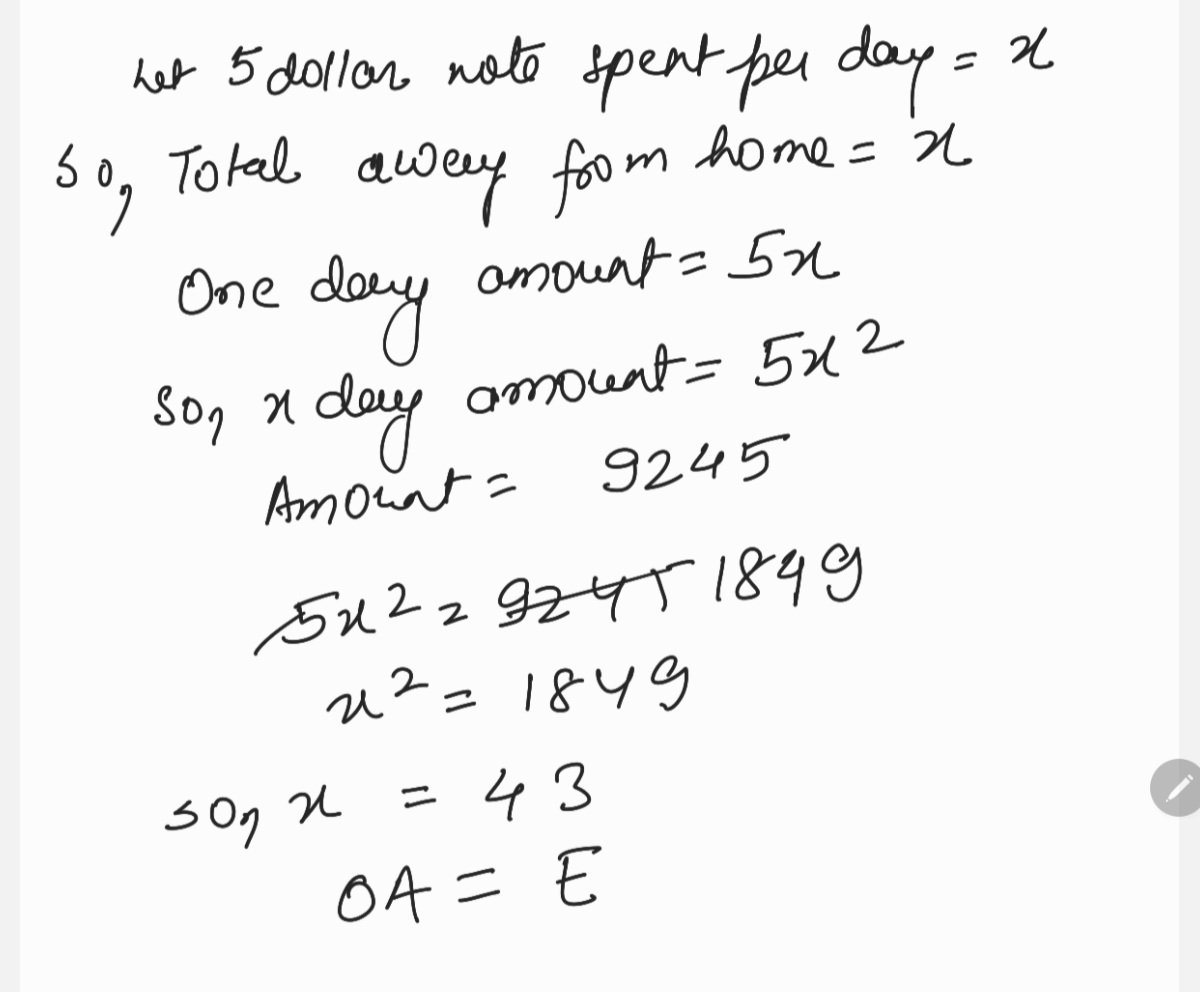 Let 5 dollar note spent per day = x
So, Total away from home = x
One day amount = 5x
So, x day amount = 5x²
Amount = 9245
5x² = 9245 1849
x² = 1849
so, x = 43
OA = E